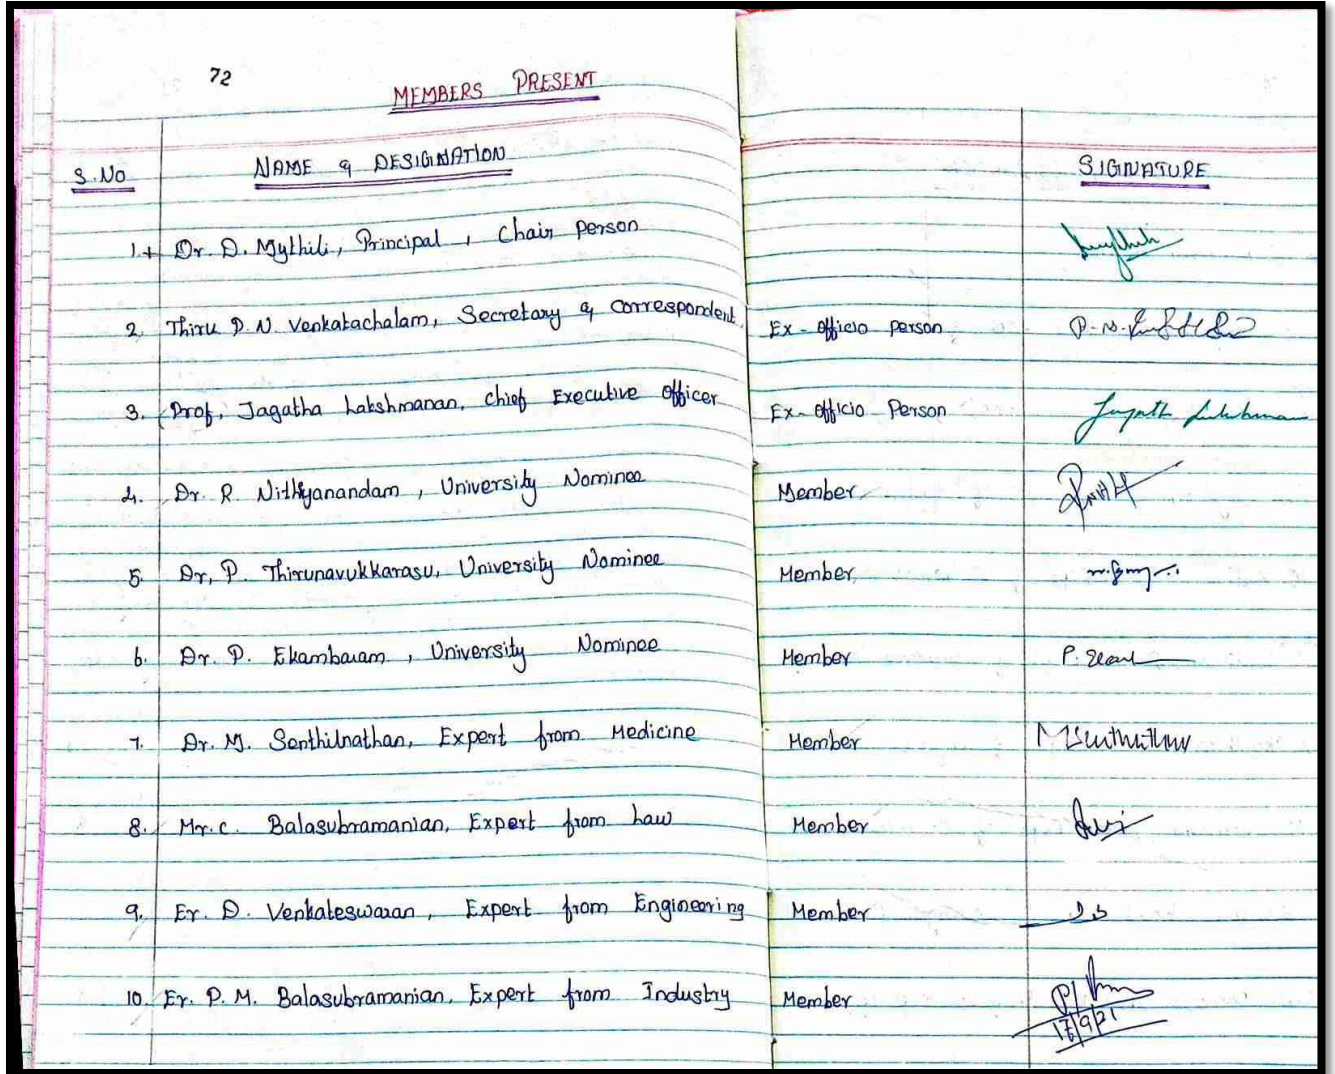 72
MEMBERS PRESENT
S.No NAME & DESIGNATION SIGNATURE
1. Dr. D. Mythili, Principal, Chair Person
2. Thiru P. N. Venkatachalam, Secretary & Correspondent, Ex-officio person P. N.
3. Prof. Jagatha Lakshmanan, Chief Executive Officer Ex-officio Person
4. Dr. R. Nithyanandam, University Nominee Member
5. Dr. P. Thirunavukkarasu, University Nominee Member
6. Dr. P. Ekambaram, University Nominee Member P.
7. Dr. M. Senthilnathan, Expert from Medicine Member
8. Mr. C. Balasubramanian, Expert from Law Member
9. Er. D. Venkateswaran, Expert from Engineering Member
10. Er. P. M. Balasubramanian, Expert from Industry Member
17/9/21